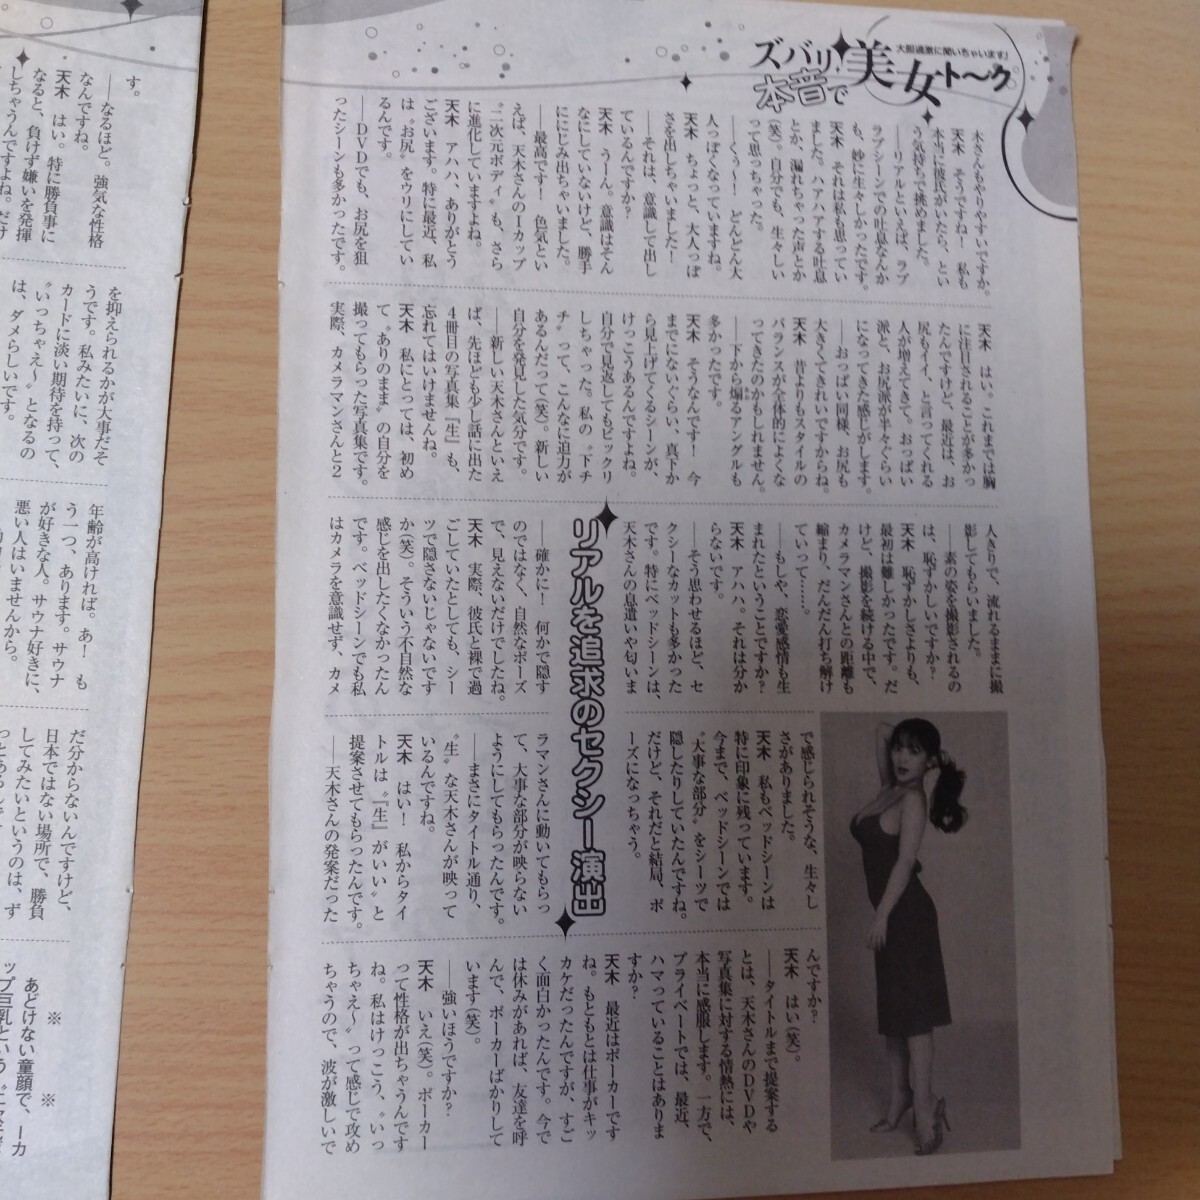 大胆過激に聞いちゃいます!
ズバリ!本音で美女ト〜ク
木さんもやりやすいですか。
天木　そうですね! 私も
本当に彼氏がいたら、とい
う気持ちで挑めました。
――リアルといえば、ラブ
ラブシーンでの吐息なんか
も、妙に生々しかったです。
天木　それは私も思ってい
ました。ハアハアする吐息
とか、漏れちゃった声とか
(笑)。自分でも、生々しい
って思っちゃった。
――くぅ〜! どんどん大
人っぽくなっていますね。
天木　ちょっと、大人っぽ
さを出しちゃいました!
――それは、意識して出し
ているんですか?
天木　うーん。意識はそん
なにしていないけど、勝手
ににじみ出ちゃいました。
――最高です! 色気とい
えば、天木さんのIカップ
〝二次元ボディ〟も、さら
に進化していますよね。
天木　アハハ、ありがとう
ございます。特に最近、私
は〝お尻〟をウリにしてい
るんです。
――DVDでも、お尻を狙
ったシーンも多かったです。
天木　はい。これまでは胸
に注目されることが多かっ
たんですけど、最近は、お
尻もイイ、と言ってくれる
人が増えてきて。おっぱい
派と、お尻派が半々ぐらい
になってきた感じがします。
――おっぱい同様、お尻も
大きくてきれいですからね。
天木　昔よりもスタイルの
バランスが全体的によくな
ってきたのかもしれません。
――下から煽るアングルも
多かったです。
天木　そうなんです! 今
までにないぐらい、真下か
ら見上げてくるシーンが、
けっこうあるんですよね。
自分で見返してもビックリ
しちゃった。私の〝ドチ
チ〟って、こんなに迫力が
あるんだって(笑)。新しい
自分を発見した気分です。
――新しい天木さんといえ
ば、先ほども少し話に出た
4冊目の写真集『生』も、
忘れてはいけませんね。
天木　私にとっては、初め
て〝ありのまま〟の自分を
撮ってもらった写真集です。
実際、カメラマンさんと2
人きりで、流れるままに撮
影してもらいました。
――素の姿を撮影されるの
は、恥ずかしいですか?
天木　恥ずかしさよりも、
最初は難しかったです。だ
けど、撮影を続ける中で、
カメラマンさんとの距離も
縮まり、だんだん打ち解け
ていって……。
――もしや、恋愛感情も生
まれたということですか?
天木　アハハ。それは分か
らないです。
――そう思わせるほど、セ
クシーなカットも多かった
です。特にベッドシーンは、
天木さんの息遣いや匂いま
リアルを追求のセクシー演出
――確かに! 何かで隠す
のではなく、自然なポーズ
で、見えないだけでしたね。
天木　実際、彼氏と裸で過
ごしていたとしても、シー
ツで隠さないじゃないです
か(笑)。そういう不自然な
感じを出したくなかったん
です。ベッドシーンでも私
はカメラを意識せず、カメ
で感じられそうな、生々し
さがありました。
天木　私もベッドシーンは
特に印象に残っています。
今まで、ベッドシーンでは
〝大事な部分〟をシーツで
隠したりしていたんですね。
だけど、それだと結局、ポ
ーズになっちゃう。
ラマンさんに動いてもらっ
て、大事な部分が映らない
ようにしてもらったんです。
――まさにタイトル通り、
〝生〟な天木さんが映って
いるんですね。
天木　はい! 私からタイ
トルは『生』がいい〟と
提案させてもらったんです。
――天木さんの発案だった
んですか?
天木　はい(笑)。
――タイトルまで提案する
とは、天木さんのDVDや
写真集に対する情熱には、
本当に感服します。一方で、
プライベートでは、最近、
ハマっていることはありま
すか?
天木　最近はポーカーです
ね。もともとは仕事がキッ
カケだったんですが、すご
く面白かったんです。今で
は休みがあれば、友達を呼
んで、ポーカーばかりして
います(笑)。
――強いほうですか?
天木　いえ(笑)。ポーカー
って性格が出ちゃうんです
ね。私はけっこう、〝いっ
ちゃえ〜〟って感じで攻め
ちゃうので、波が激しいで
す。
――なるほど。強気な性格
なんですね。
天木　はい。特に勝負事に
なると、負けず嫌いを発揮
しちゃうんですよね。だけ
を抑えられるかが大事だそ
うです。私みたいに、次の
カードに淡い期待を持って、
〝いっちゃえ〜〟となるの
は、ダメらしいです。
年齢が高ければ。あ! も
う一つ、あります。サウナ
が好きな人。サウナ好きに、
悪い人はいませんから。
だ分からないんですけど、
日本ではない場所で、勝負
してみたいというのは、ず
※　　※
あどけない童顔で、Iカ